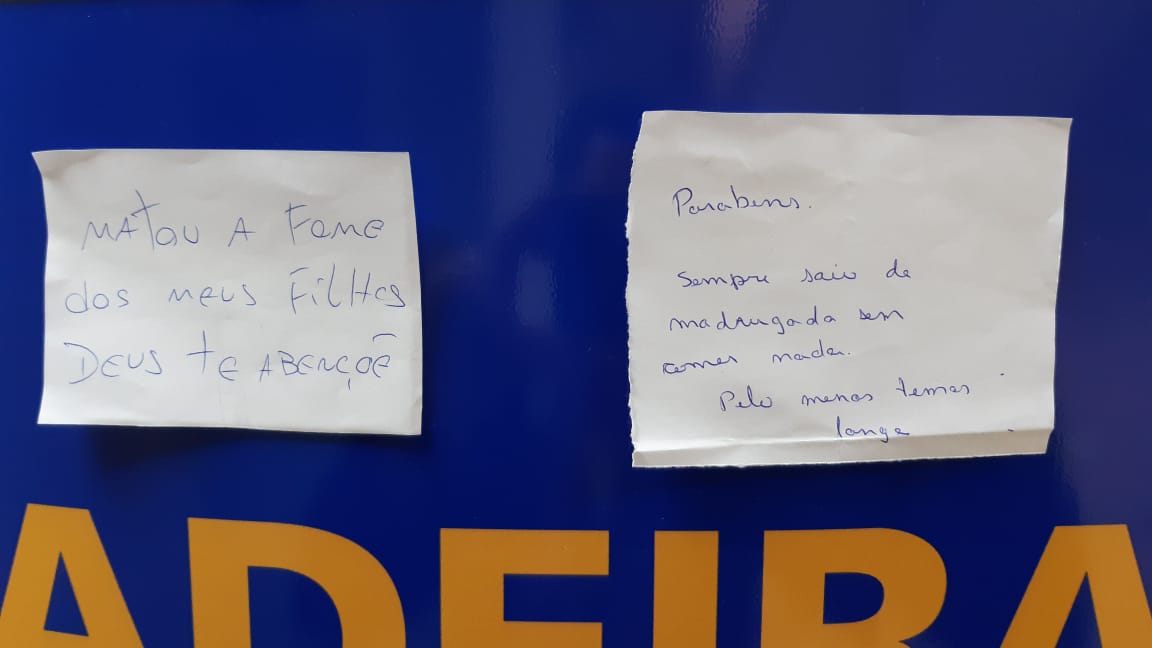 MATOU A FOME
DOS MEUS FILHOS
DEUS TE ABENÇOÊ
Parabens.
Sempre saio de
madrugada sem
comer nada.
Pelo menos temos
lange
ADEIRA